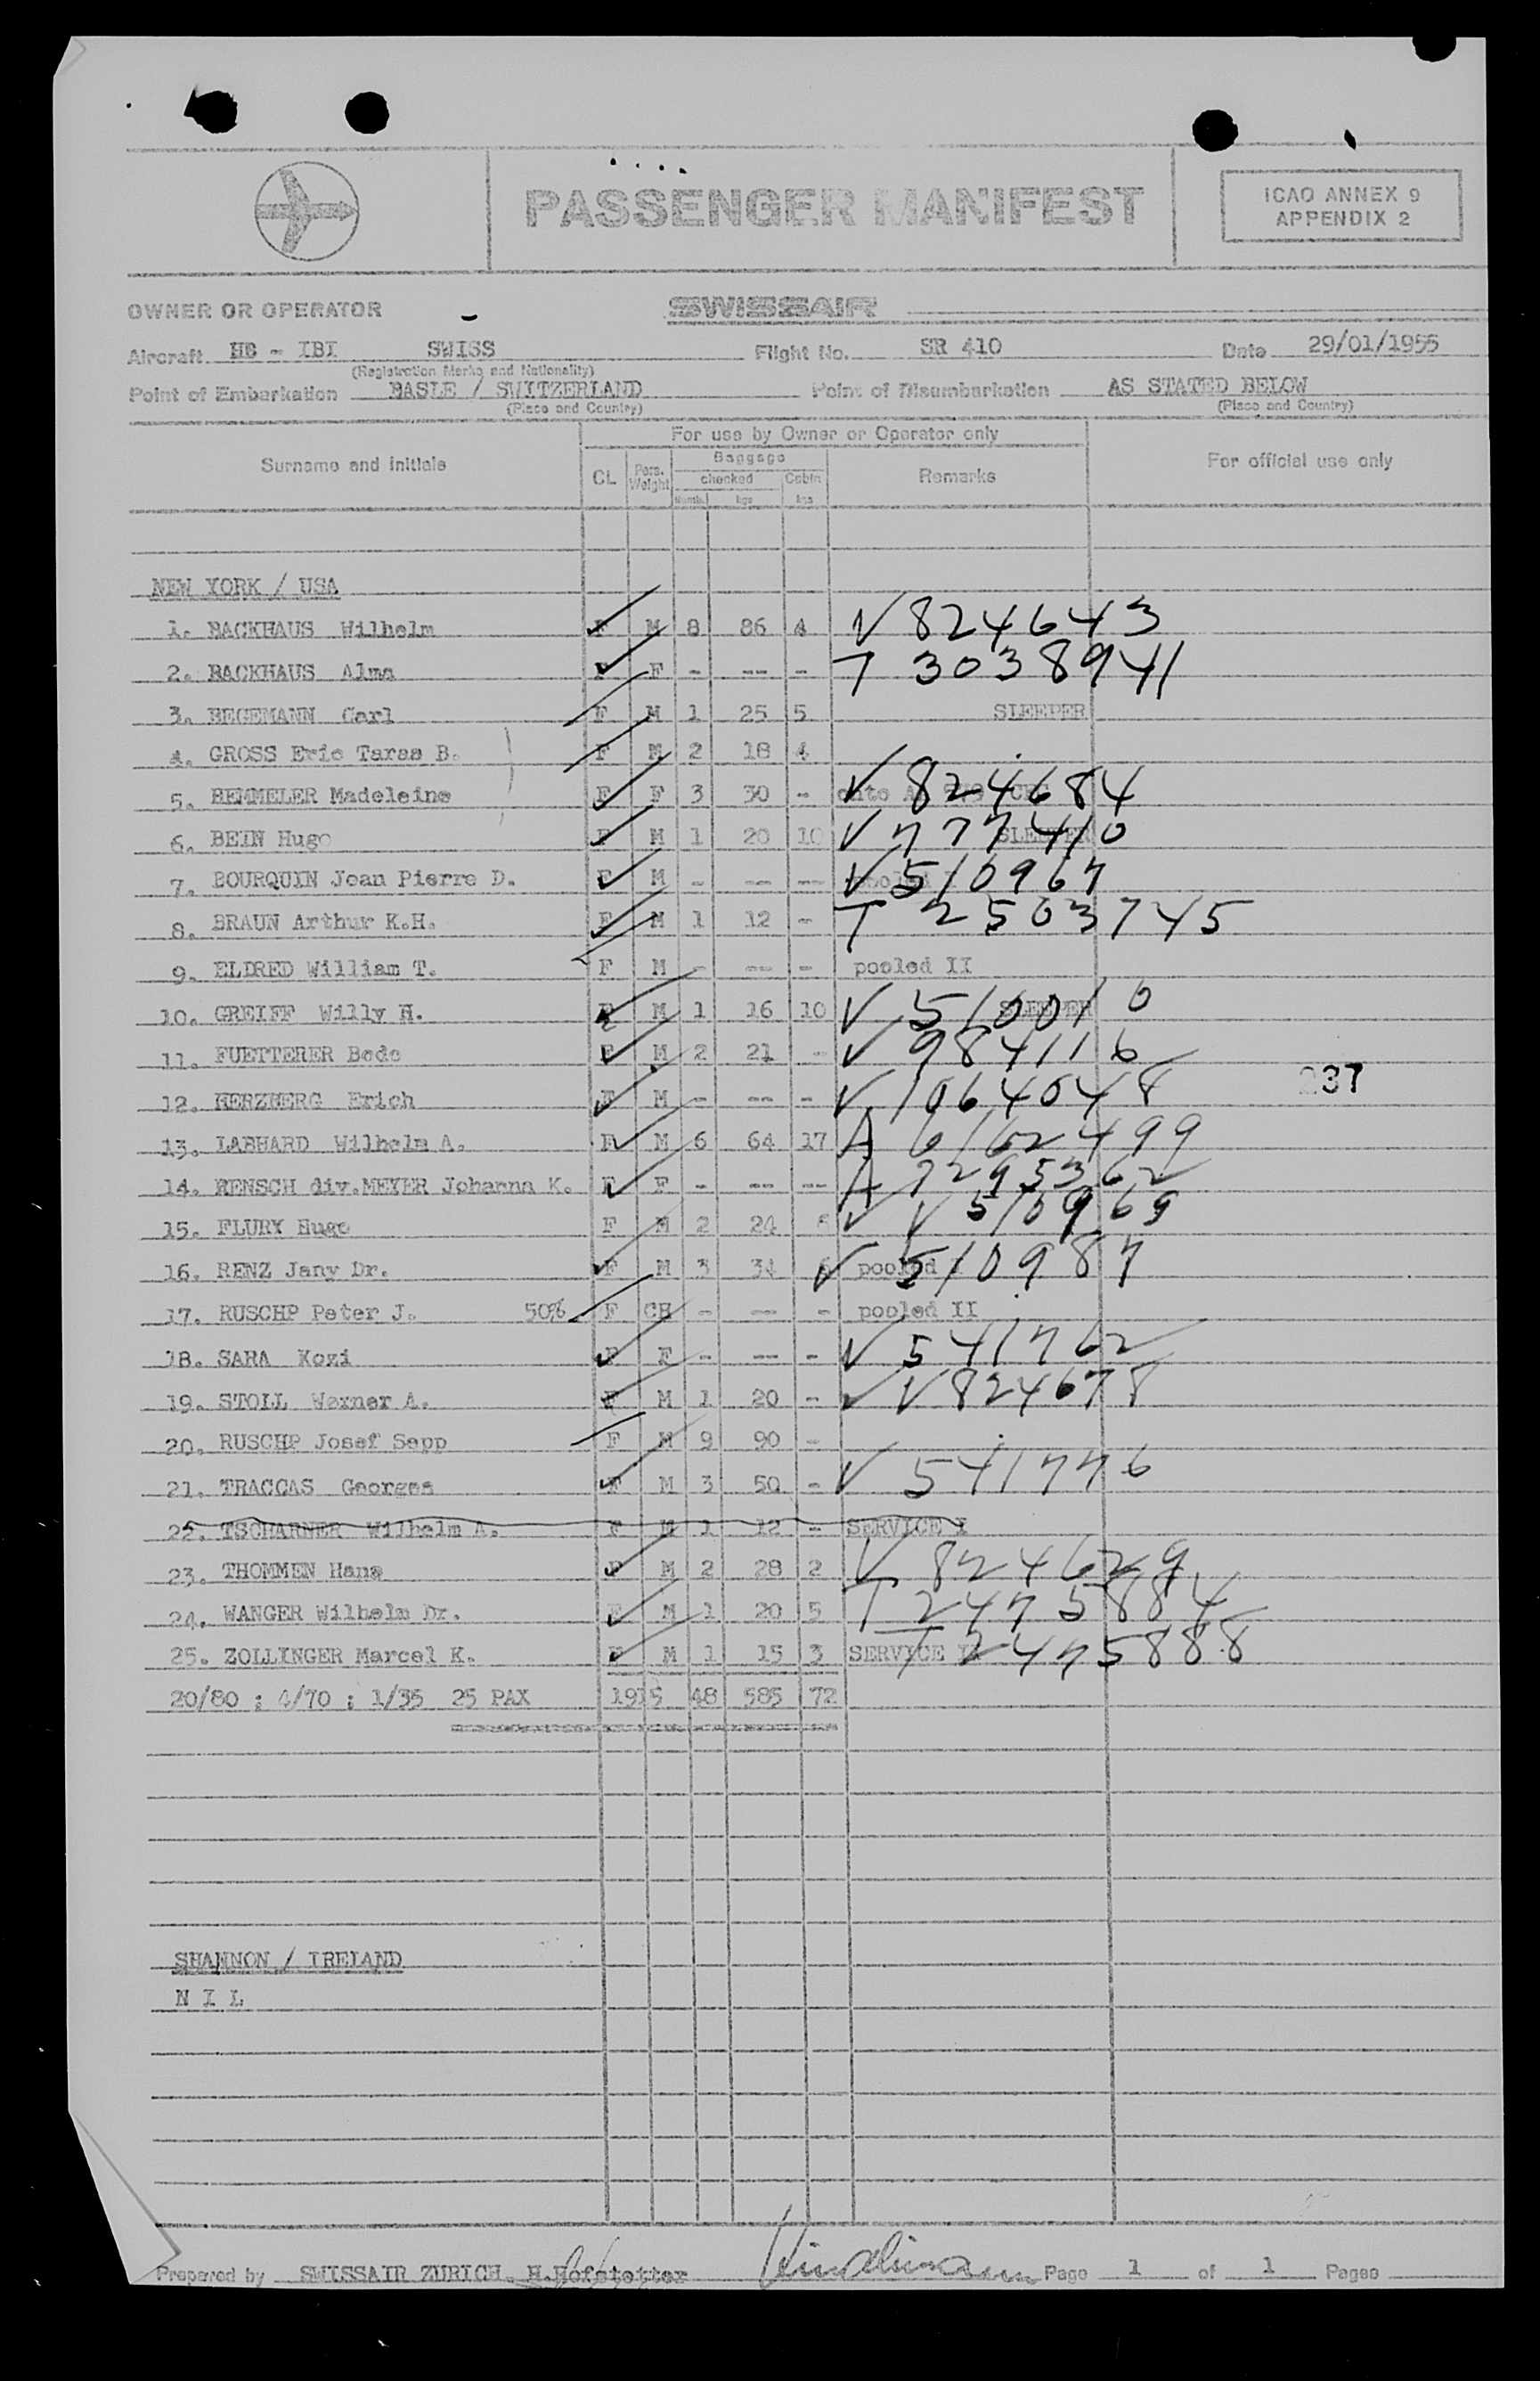 PASSENGER MANIFEST
ICAO ANNEX 9
APPENDIX 2
OWNER OR OPERATOR SWISSAIR
Aircraft HB - IBI SWISS Flight No. SR 410 Date 29/01/1955
(Registration Marks and Nationality)
Point of Embarkation BASLE / SWITZERLAND Point of Disembarkation AS STATED BELOW
(Place and Country) (Place and Country)
For use by Owner or Operator only
Surname and initials CL Pers. Weight Baggage checked Numb. kgs Cabin kgs Remarks For official use only
NEW YORK / USA
1. BACKHAUS Wilhelm F M 8 86 4 V 824643
2. BACKHAUS Alma F F - --- - T 3038941
3. BEGEMANN Carl F M 1 25 5 SLEEPER
4. GROSS Eric Taras B. F M 2 18 4
5. BEMMELER Madeleine F F 3 30 - V 824684
6. BEIN Hugo F M 1 20 10 V 777410 SLEEPER
7. BOURQUIN Jean Pierre D. F M - --- --- V 510967
8. BRAUN Arthur K.H. F M 1 12 - T 2503745
9. ELDRED William T. F M - --- - pooled II
10. GREIFF Willy H. F M 1 16 10 V 510010 SLEEPER
11. FUETTERER Bodo F M 2 21 - V 984116
12. HERZBERG Erich F M - --- - V 1064048
13. LABHARD Wilhelm A. F M 6 64 17 A 6162499
14. RENSCH div.MEYER Johanna K. F F - --- --- A 7295362
15. FLURY Hugo F M 2 24 V 510969
16. RENZ Jany Dr. F M 3 34 V 510987 pooled
17. RUSCHP Peter J. 50% F CH - --- - pooled II
18. SARA Kozi F F - --- - V 541762
19. STOLL Werner A. F M 1 20 - V 824678
20. RUSCHP Josef Sepp F M 9 90 -
21. TRACCAS Georges F M 3 50 - V 541776
22. TSCHARNER Wilhelm A. F M 1 12 - SERVICE I
23. THOMMEN Hans F M 2 28 2 V 824629
24. WANGER Wilhelm Dr. F M 1 20 5 T 2475884
25. ZOLLINGER Marcel K. F M 1 15 3 SERVICE T 2475888
20/80 ; 4/70 ; 1/35 25 PAX 1915 48 585 72
237
SHANNON / IRELAND
N I L
Prepared by SWISSAIR ZURICH H.Hofstetter Page 1 of 1 Pages